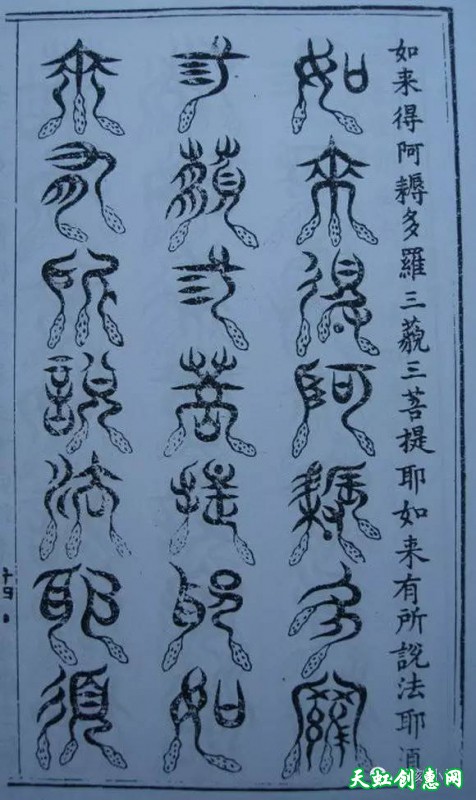 如来得阿耨多羅三藐三菩提耶如来有所說法耶須
如來得阿耨多羅
三藐三菩提耶如
來有所說法耶須
十四
天虹创意网